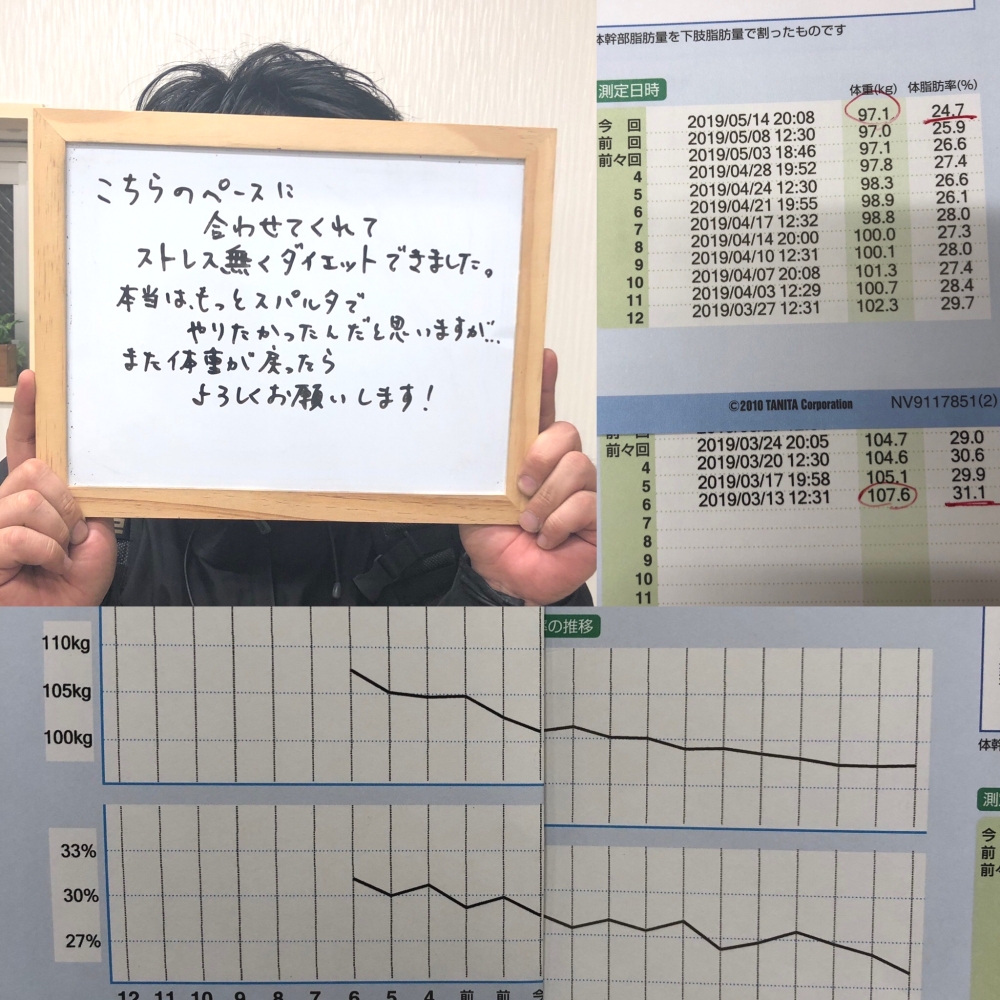 こちらのペースに
合わせてくれて
ストレス無くダイエットできました。
本当は、もっとスパルタで
やりたかったんだと思いますが…
また体重が戻ったら
よろしくお願いします！
体幹部脂肪量を下肢脂肪量で割ったものです
測定日時 体重(kg) 体脂肪率(%)
今回 2019/05/14 20:08 97.1 24.7
前回 2019/05/08 12:30 97.0 25.9
前々回 2019/05/03 18:46 97.1 26.6
4 2019/04/28 19:52 97.8 27.4
5 2019/04/24 12:30 98.3 26.6
6 2019/04/21 19:55 98.9 26.1
7 2019/04/17 12:32 98.8 28.0
8 2019/04/14 20:00 100.0 27.3
9 2019/04/10 12:31 100.1 28.0
10 2019/04/07 20:08 101.3 27.4
11 2019/04/03 12:29 100.7 28.4
12 2019/03/27 12:31 102.3 29.7
©2010 TANITA Corporation NV9117851(2)
前々回 2019/03/24 20:05 104.7 29.0
4 2019/03/20 12:30 104.6 30.6
5 2019/03/17 19:58 105.1 29.9
6 2019/03/13 12:31 107.6 31.1
7
8
9
10
11
110kg
105kg
100kg
33%
30%
27%
12 11 10 9 8 7 6 5 4 前 前 今
の推移
体幹
測定
今
前
前々